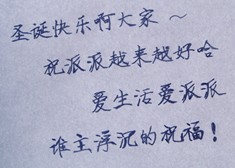 圣诞快乐啊大家～
祝派派越来越好哈
爱生活爱派派
谁主浮沉的祝福！